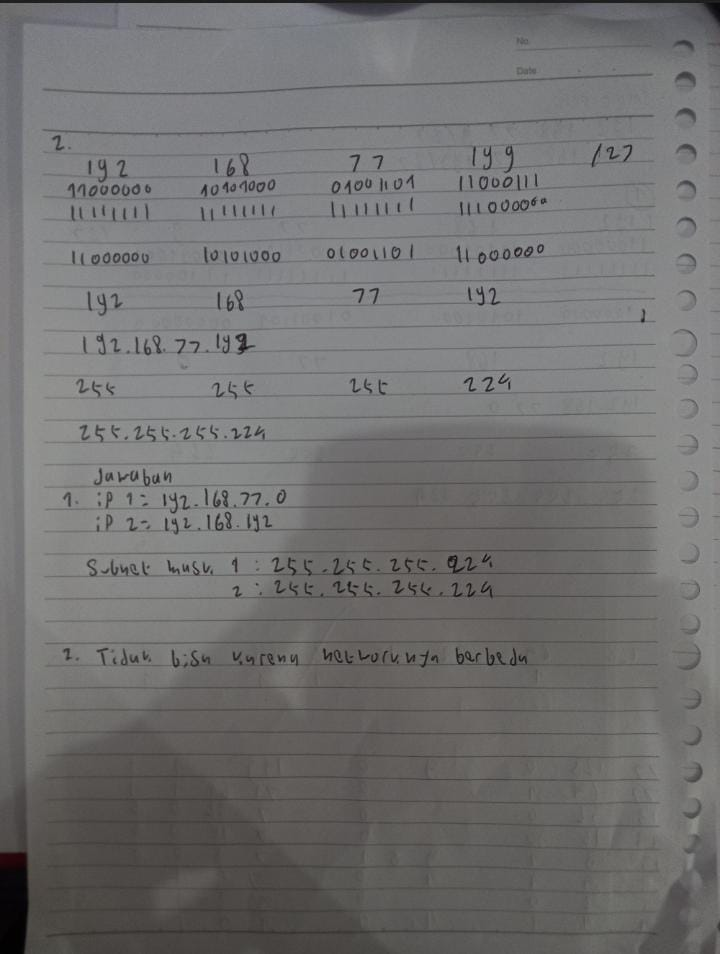 No
Date
2.
192 168 77 199 /27
11000000 10101000 01001101 11000111
11111111 11111111 11111111 11100000
11000000 10101000 01001101 11000000
192 168 77 192
192.168.77.192
255 255 255 224
255.255.255.224
Jawaban
1. iP 1 = 192.168.77.0
iP 2 = 192.168.192
Subnet mask 1 : 255.255.255.224
2 : 255.255.255.224
2. Tidak bisa karena networknya berbeda